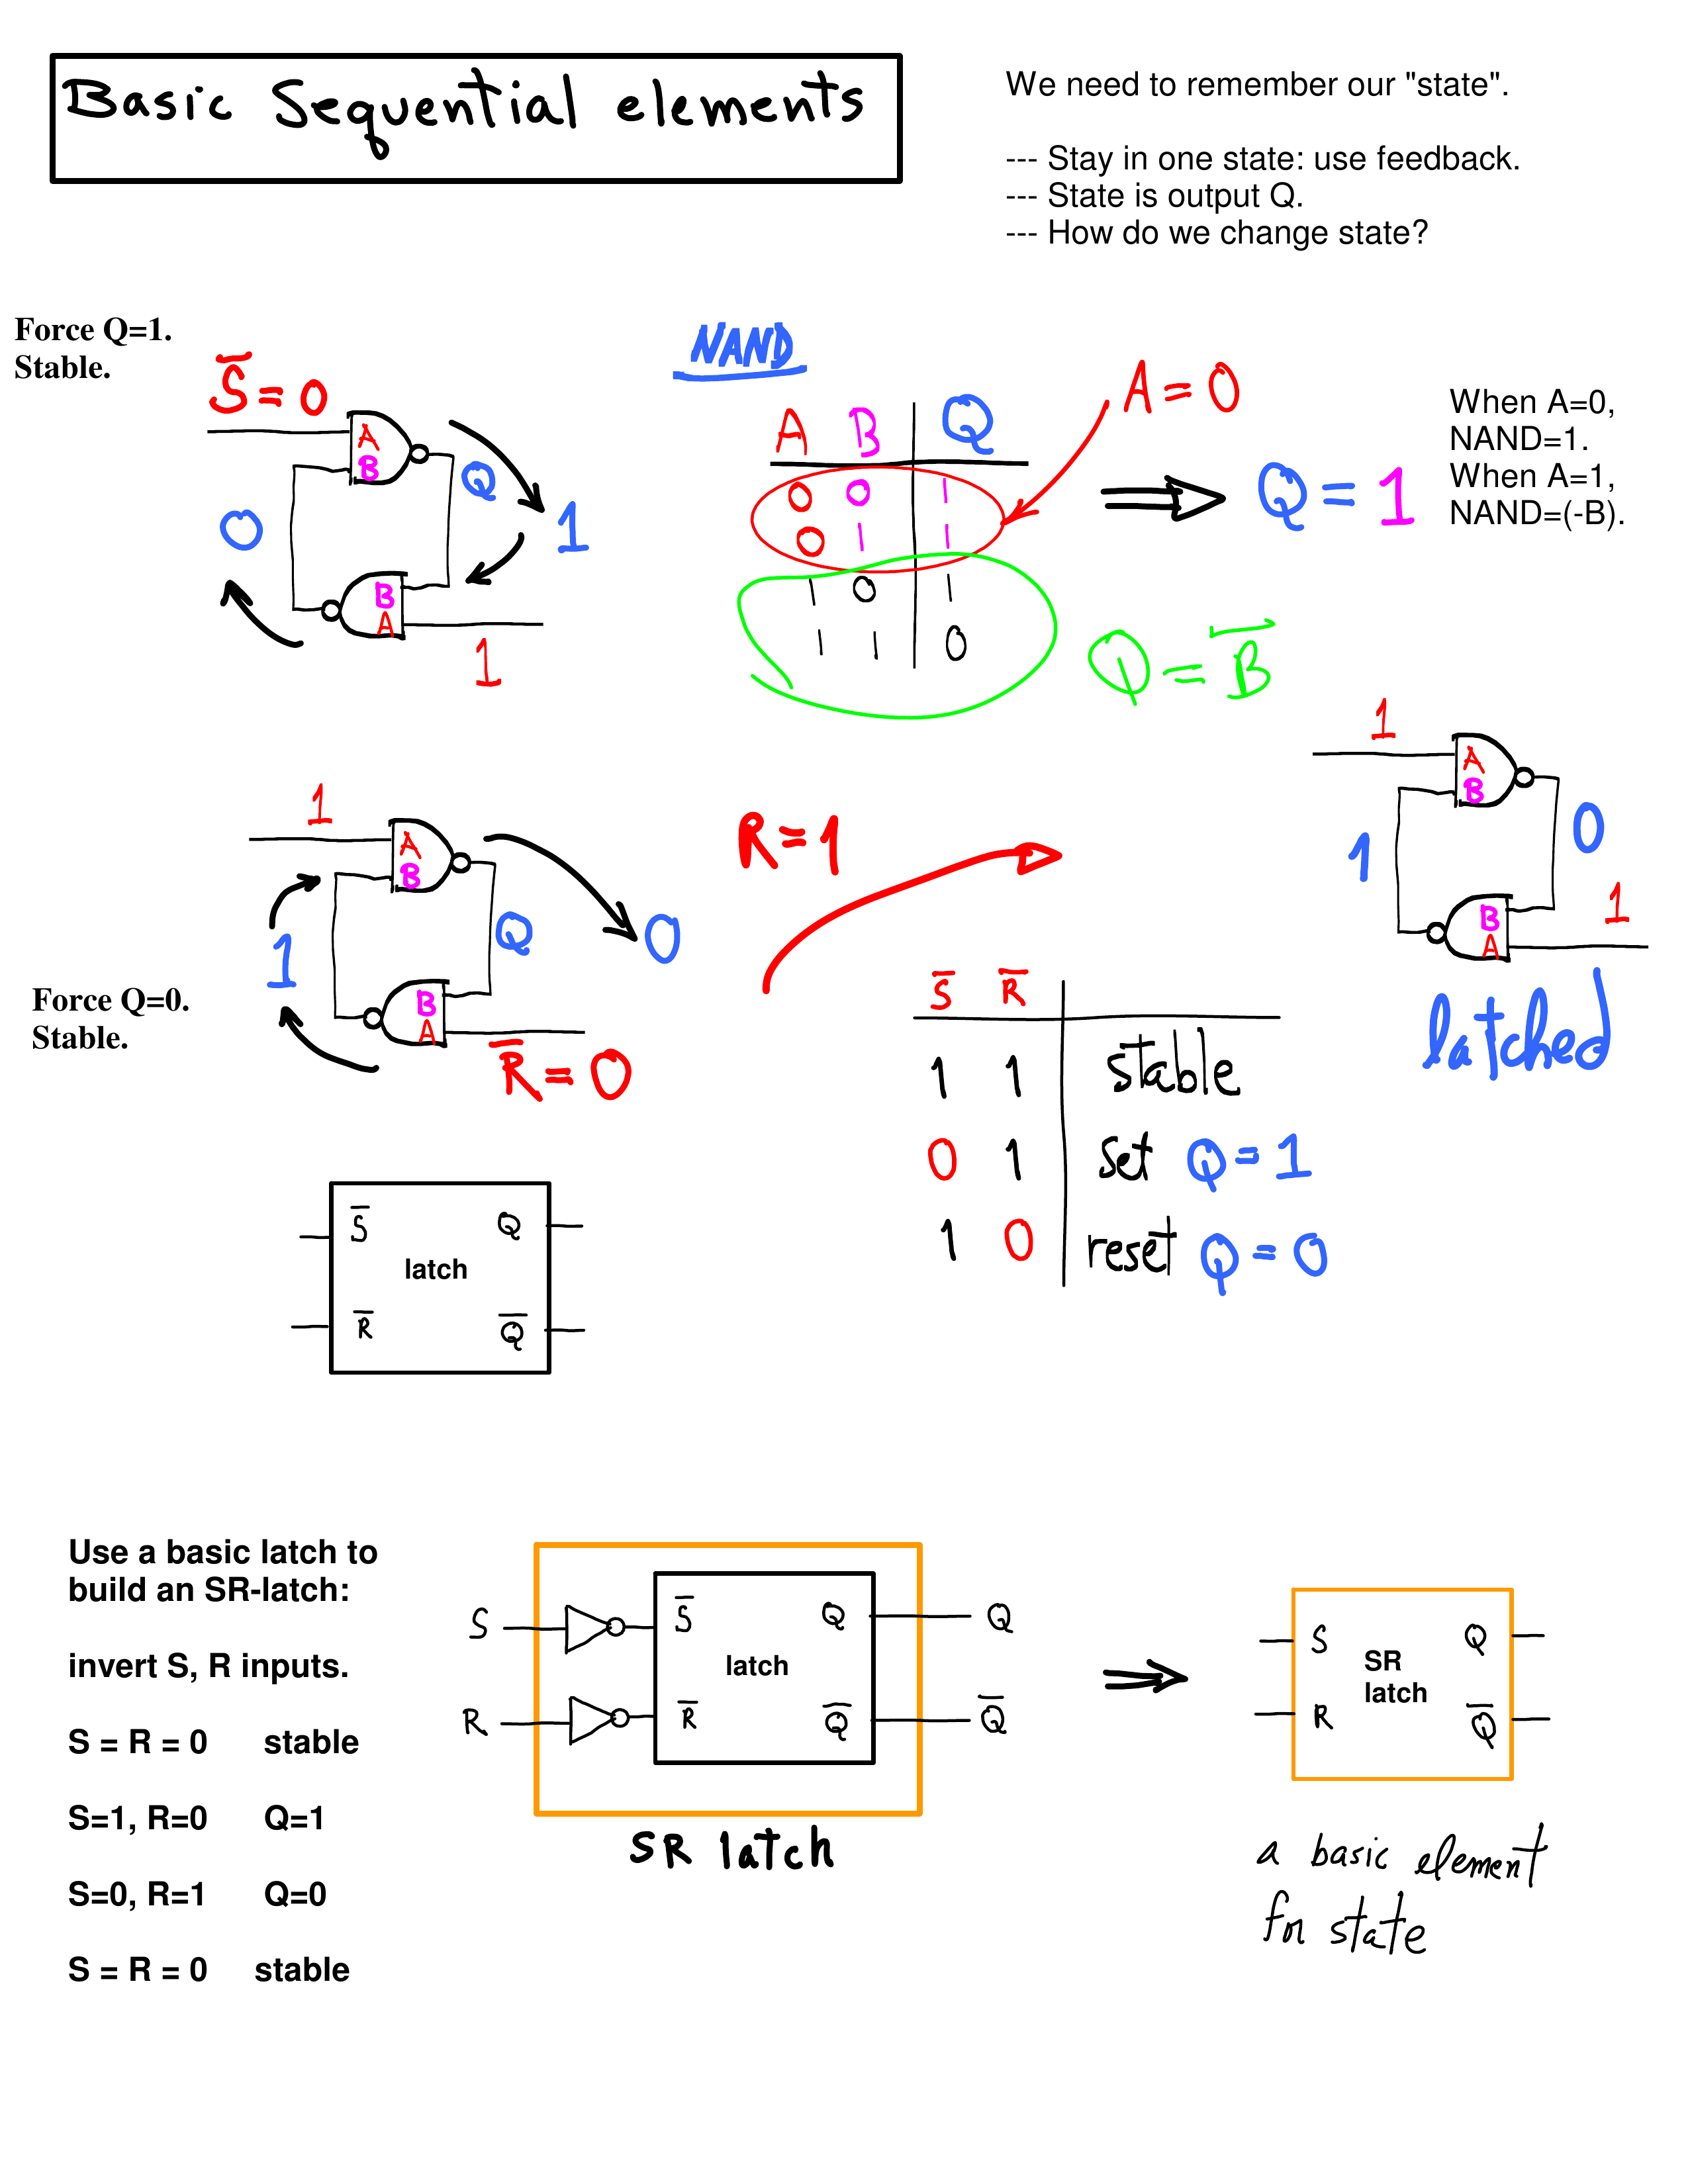 Basic Sequential elements
We need to remember our "state".
--- Stay in one state: use feedback.
--- State is output Q.
--- How do we change state?
Force Q=1.
Stable.
S̅ = 0
A
B
Q
0
1
B
A
1
NAND
A B Q
0 0 1
0 1 1
1 0 1
1 1 0
A = 0
Q = 1
Q = B̅
When A=0,
NAND=1.
When A=1,
NAND=(-B).
1
A
B
Q
1
0
B
A
R̅ = 0
Force Q=0.
Stable.
R = 1
1
A
B
0
1
B
A
1
latched
S̅ R̅
1 1 stable
0 1 set Q = 1
1 0 reset Q = 0
S̅ Q
latch
R̅ Q̅
Use a basic latch to
build an SR-latch:
invert S, R inputs.
S = R = 0 stable
S=1, R=0 Q=1
S=0, R=1 Q=0
S = R = 0 stable
S S̅ Q Q
latch
R R̅ Q̅ Q̅
SR latch
S Q
SR
latch
R Q̅
a basic element
for state